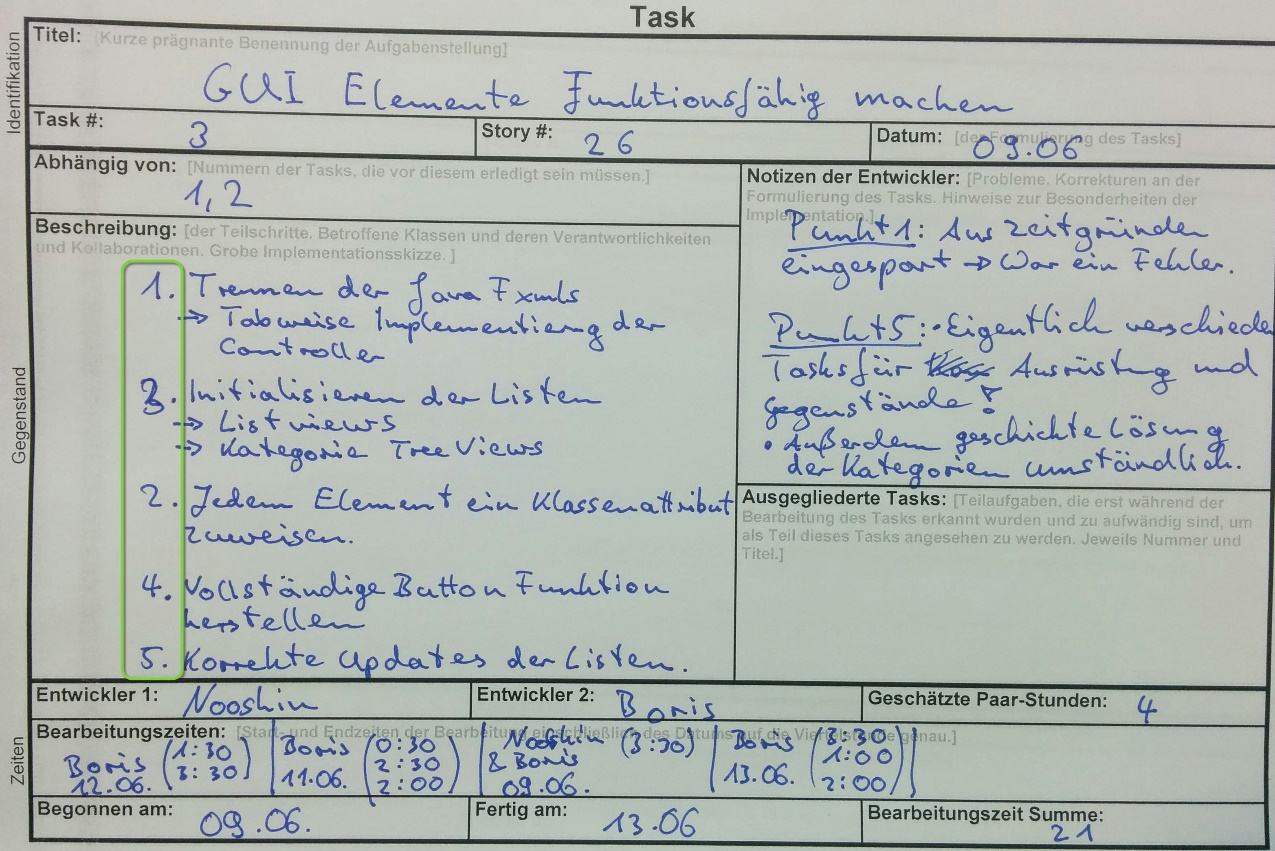 Task
Identifikation
Titel: [Kurze prägnante Benennung der Aufgabenstellung]
GUI Elemente Funktionsfähig machen
Task #: 3
Story #: 26
Datum: [der Formulierung des Tasks]
09.06
Gegenstand
Abhängig von: [Nummern der Tasks, die vor diesem erledigt sein müssen.]
1, 2
Beschreibung: [der Teilschritte. Betroffene Klassen und deren Verantwortlichkeiten
und Kollaborationen. Grobe Implementationsskizze. ]
1. Trennen der Java Fxmls
→ Tabweise Implementierung der
Controller
3. Initialisieren der Listen
→ List views
→ Kategorie Tree Views
2. Jedem Element ein Klassenattribut
zuweisen.
4. Vollständige Button Funktion
herstellen
5. Korrekte Updates der Listen.
Notizen der Entwickler: [Probleme. Korrekturen an der
Formulierung des Tasks. Hinweise zur Besonderheiten der
Implementation.]
Punkt 1: Aus Zeitgründen
eingespart → War ein Fehler.
Punkt 5: • Eigentlich verschiede
Tasks für Ausrüstung und
Gegenstände!
• Außerdem geschichte Lösung
der Kategorien umständlich.
Ausgegliederte Tasks: [Teilaufgaben, die erst während der
Bearbeitung des Tasks erkannt wurden und zu aufwändig sind, um
als Teil dieses Tasks angesehen zu werden. Jeweils Nummer und
Titel.]
Entwickler 1: Nooshin
Entwickler 2: Boris
Geschätzte Paar-Stunden: 4
Zeiten
Bearbeitungszeiten: [Start- und Endzeiten der Bearbeitung einschließlich des Datums auf die Viertelstunde genau.]
Boris
12.06.
(1:30
3:30)
Boris
11.06.
(0:30
2:30
2:00)
Nooshin
& Boris
09.06.
(3:30)
Boris
13.06.
(3:30
1:00
2:00)
Begonnen am: 09.06.
Fertig am: 13.06
Bearbeitungszeit Summe:
21